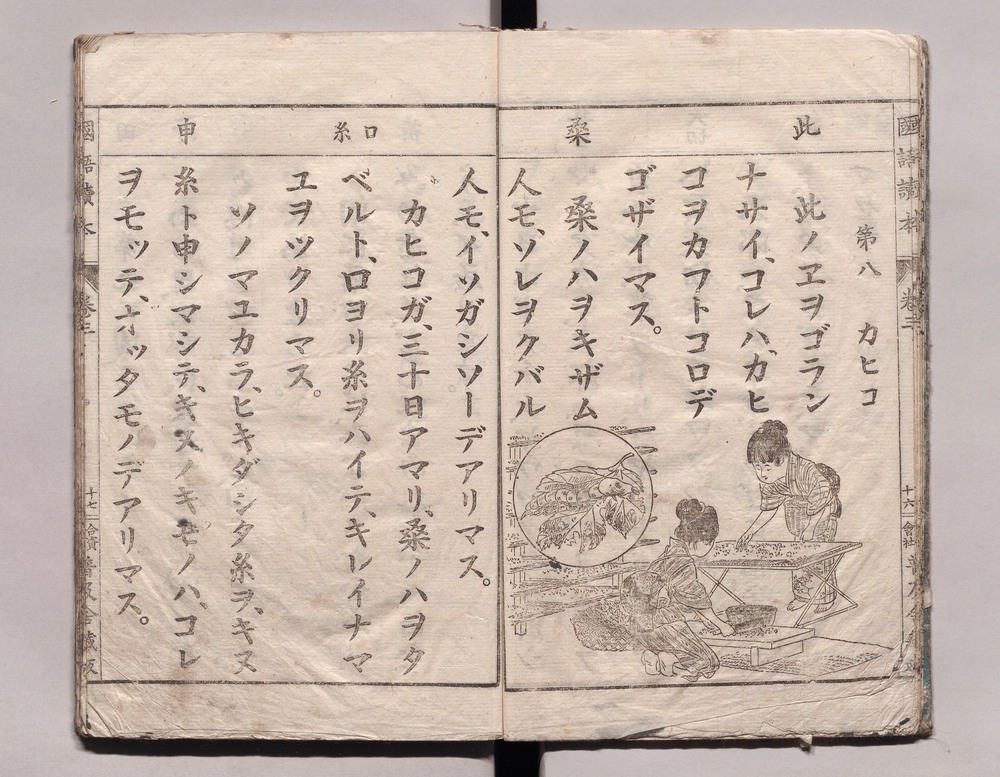 此
桑
第八 カヒコ
此ノヱヲゴラン
ナサイ、コレハ、カヒ
コヲカフトコロデ
ゴザイマス。
桑ノハヲキザム
人モ、ソレヲクバル
國語讀本
卷三
十六
會社
口
糸
申
人モ、イソガシソーデアリマス。
カヒコガ、三十日アマリ、桑ノハヲタ
ベルト、口ヨリ糸ヲハイテ、キレイナマ
ユヲツクリマス。
ソノマユカラ、ヒキダシタ糸ヲ、キヌ
糸ト申シマシテ、キヌノキモノハ、コレ
ヲモッテ、オッタモノデアリマス。
國語讀本
卷三
十七
合資
普及舍藏版